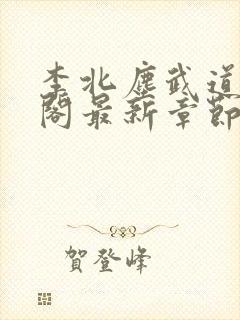 李北塵武道
閣最新章節
賀登峰